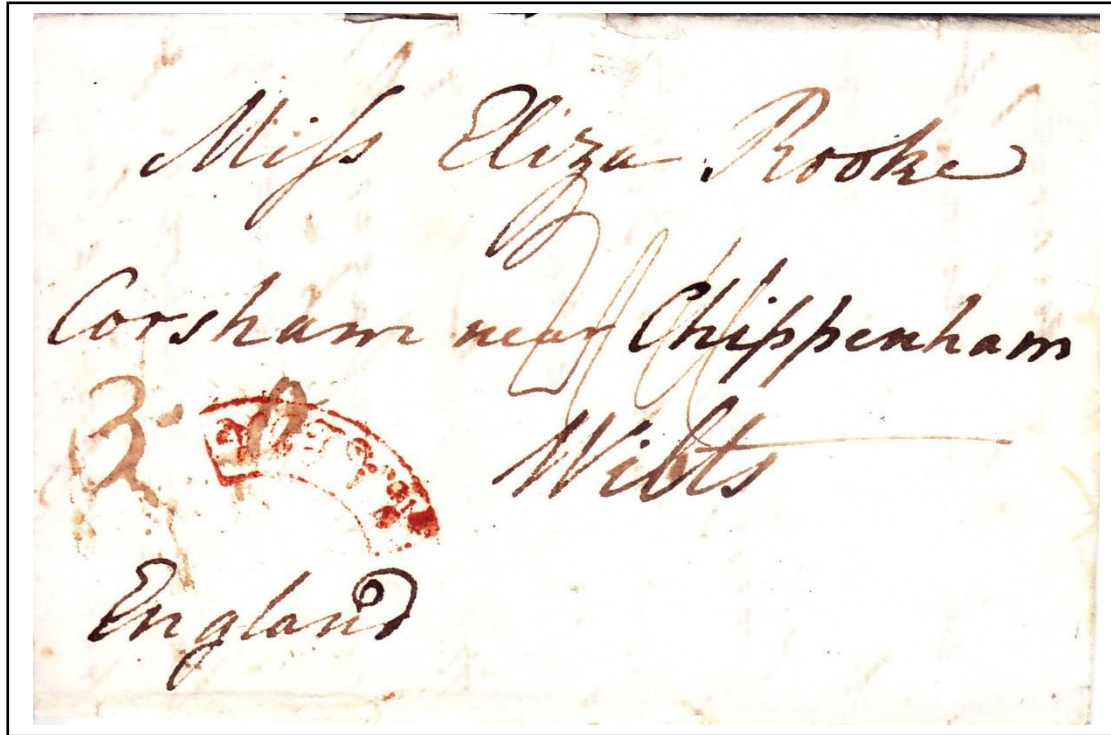 Miſs Eliza Rooke
Corsham near Chippenham
Wilts
England